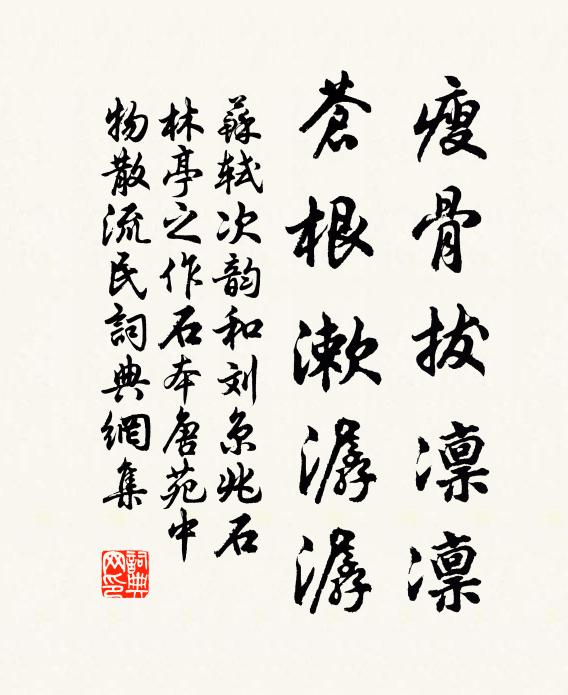 瘦骨拔凛凛
苍根漱潺潺
蘇轼次韵和刘京兆石
林亭之作石本唐苑中
物散流民詞典網集
詞典
网印